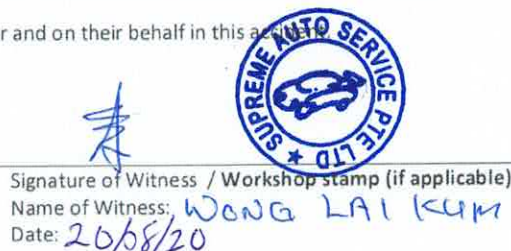 r and on their behalf in this accident.
SUPREME AUTO SERVICE PTE LTD
Signature of Witness / Workshop stamp (if applicable)
Name of Witness: WONG LAI KUM
Date: 20/08/20